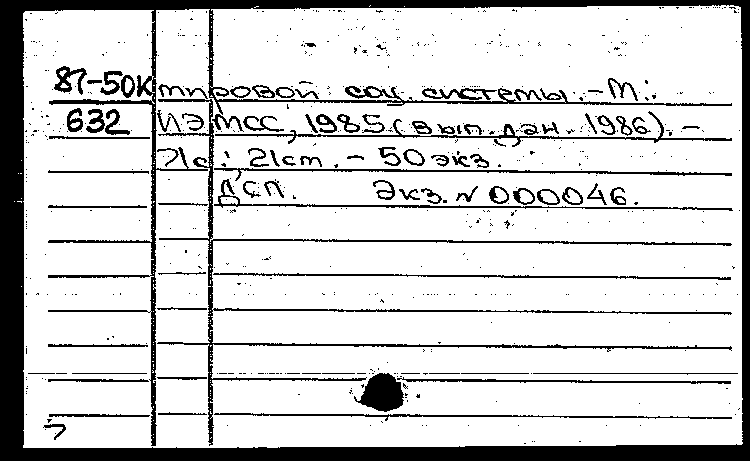 87-50К мировой соц. системы. - М.:
632 ИЭМСС, 1985 (вып. дан. 1986). -
71с.; 21см. - 50 экз.
ДСП. Экз. N 000046.